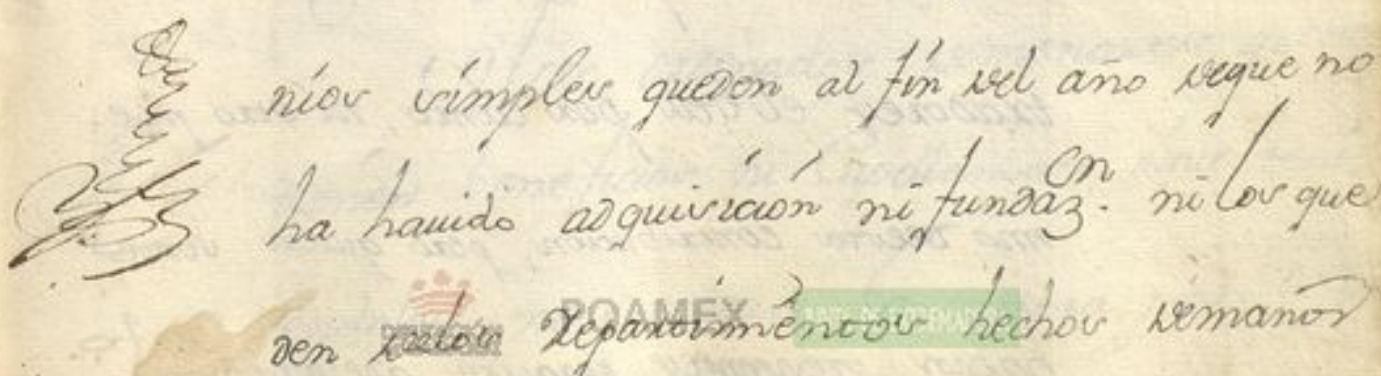 nios simples quedon al fin del año deque no
ha hauido adquisicion ni fundaz.on ni los que
den Repartimientos hechos demanos
POAMEX